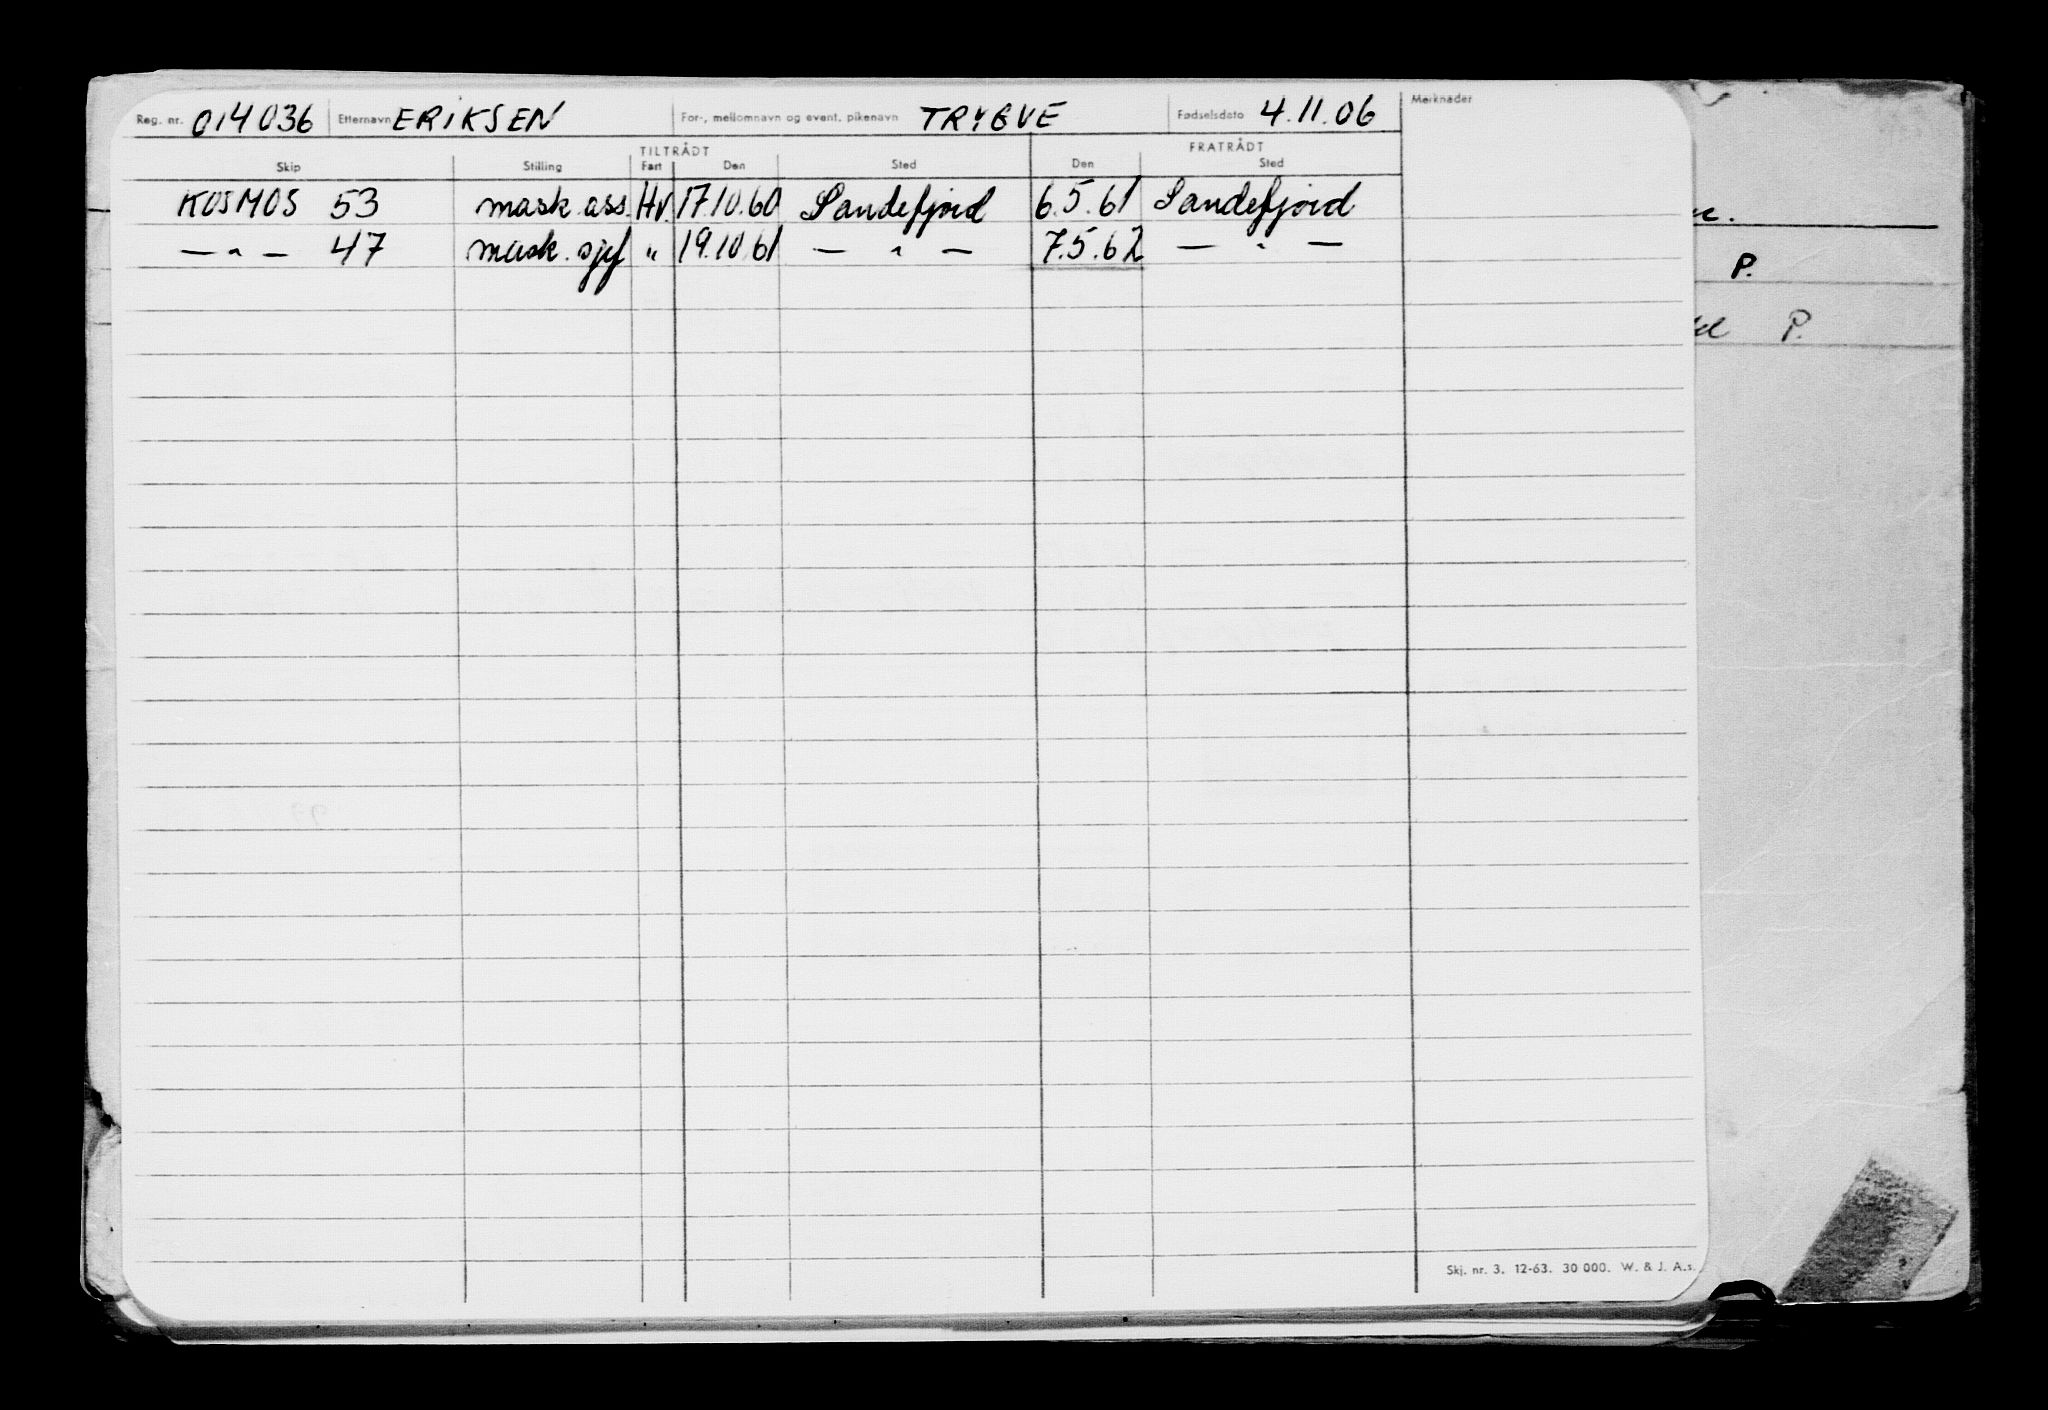 Reg. nr. 014036 Etternavn ERIKSEN For-, mellomnavn og event. pikenavn TRYGVE Fødselsdato 4.11.06 Merknader
TILTRÅDT FRATRÅDT
Skip Stilling Fart Den Sted Den Sted
KOSMOS 53 mask. ass. Hv. 17.10.60 Sandefjord 6.5.61 Sandefjord
— " — 47 mask. sjef " 19.10.61 — " — 7.5.62 — " —
P.
P.
Skj. nr. 3. 12-63. 30 000. W. & J. A.s.